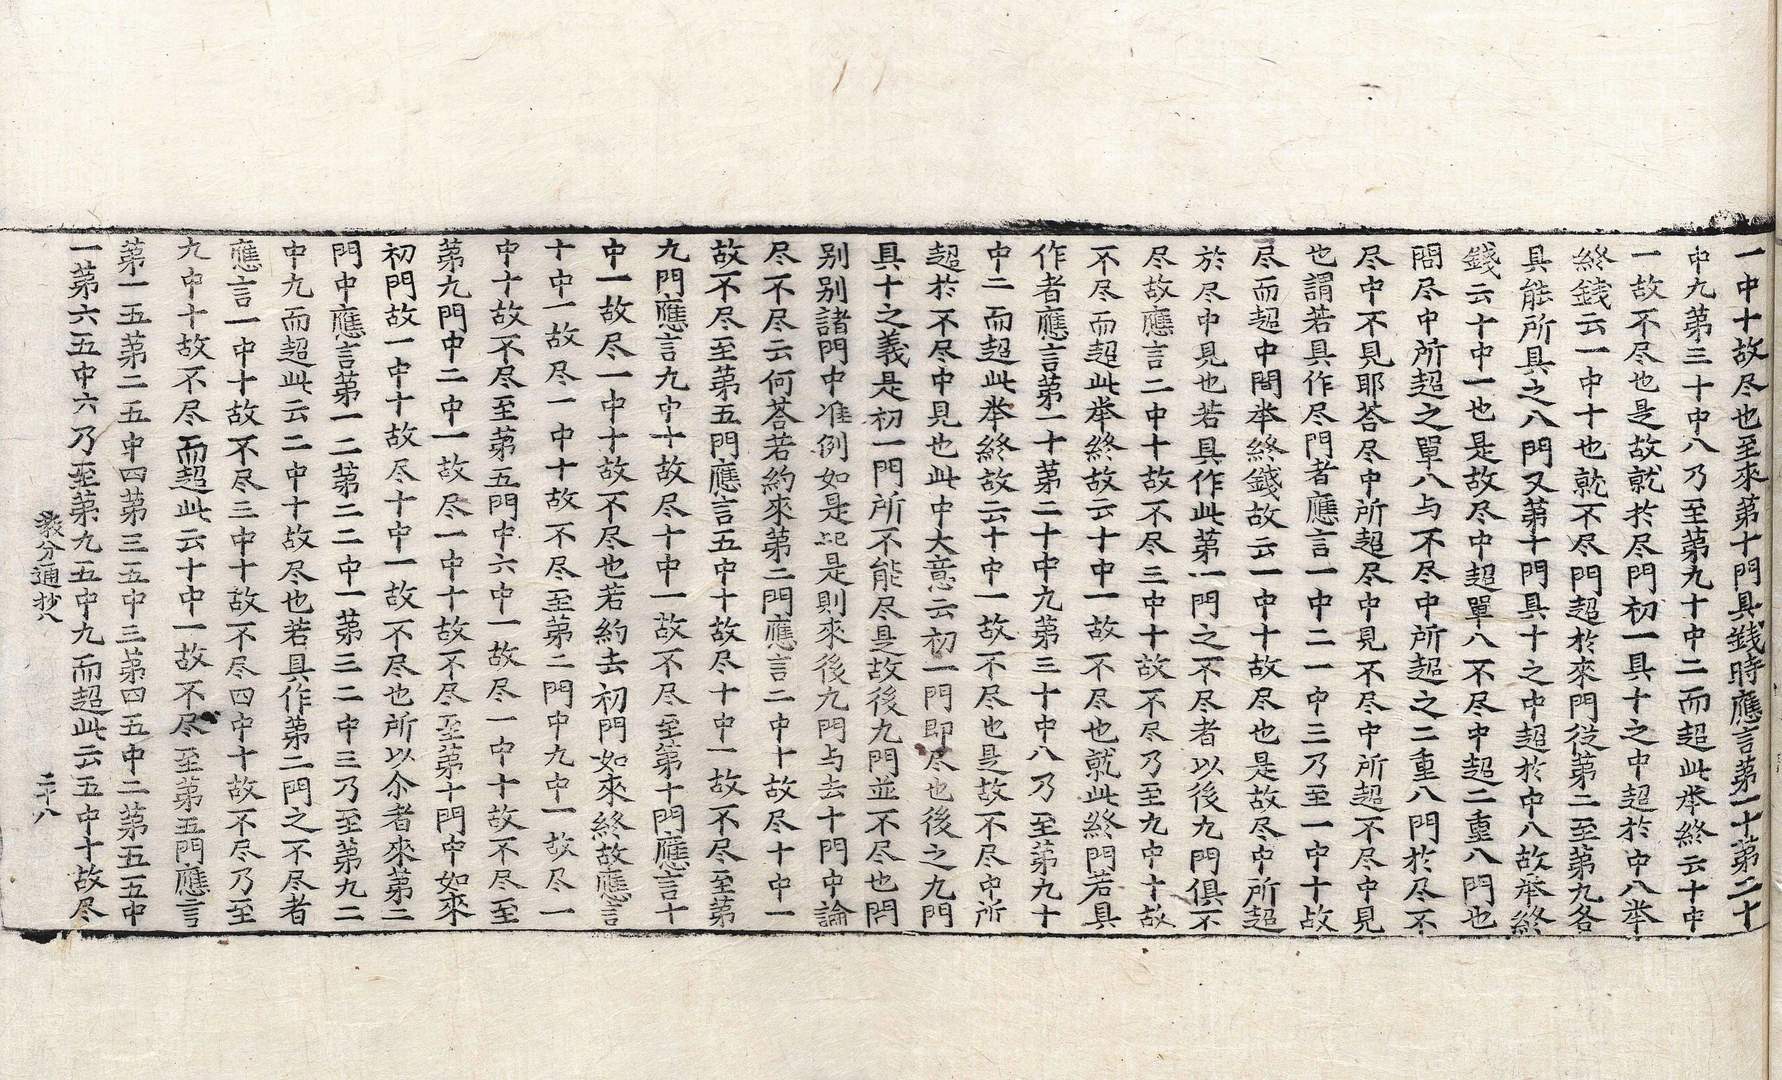 一中十故尽也至來第十門具錢時應言第一十第二十
中九第三十中八乃至第九十中二而超此举終云十中
一故不尽也是故就於尽門初一具十之中超於中八举
終錢云一中十也就不尽門超於來門從第二至第九各
具能所具之八門又第十門具十之中超於中八故举終
錢云十中一也是故尽中超單八不尽中超二重八門也
問尽中所超之單八与不尽中所超之二重八門於尽不
尽中不見耶荅尽中所超尽中見不尽中所超不尽中見
也謂若具作尽門者應言一中二一中三乃至一中十故
尽而超中間举終錢故云一中十故尽也是故尽中所超
於尽中見也若具作此第一門之不尽者以後九門俱不
尽故應言二中十故不尽三中十故不尽乃至九中十故
不尽而超此举終故云十中一故不尽也就此終門若具
作者應言第一十第二十中九第三十中八乃至第九十
中二而超此举終故云十中一故不尽也是故不尽中所
超於不尽中見也此中大意云初一門即尽也後之九門
具十之義是初一門所不能尽是故後九門並不尽也問
别别諸門中准例如是耶是則來後九門与去十門中論
尽不尽云何荅若約來第二門應言二中十故尽十中一
故不尽至第五門應言五中十故尽十中一故不尽至第
九門應言九中十故尽十中一故不尽至第十門應言十
中一故尽一中十故不尽也若約去初門如來終故應言
十中一故尽一中十故不尽至第二門中九中一故尽一
中十故不尽至第五門中六中一故尽一中十故不尽至
第九門中二中一故尽一中十故不尽至第十門中如來
初門故一中十故尽十中一故不尽也所以尒者來第二
門中應言第一二第二二中一第三二中三乃至第九二
中九而超此云二中十故尽也若具作第二門之不尽者
應言一中十故不尽三中十故不尽四中十故不尽乃至
九中十故不尽而超此云十中一故不尽至第五門應言
第一五第二五中四第三五中三第四五中二第五五中
一第六五中六乃至第九五中九而超此云五中十故尽
教分通抄八　二十八